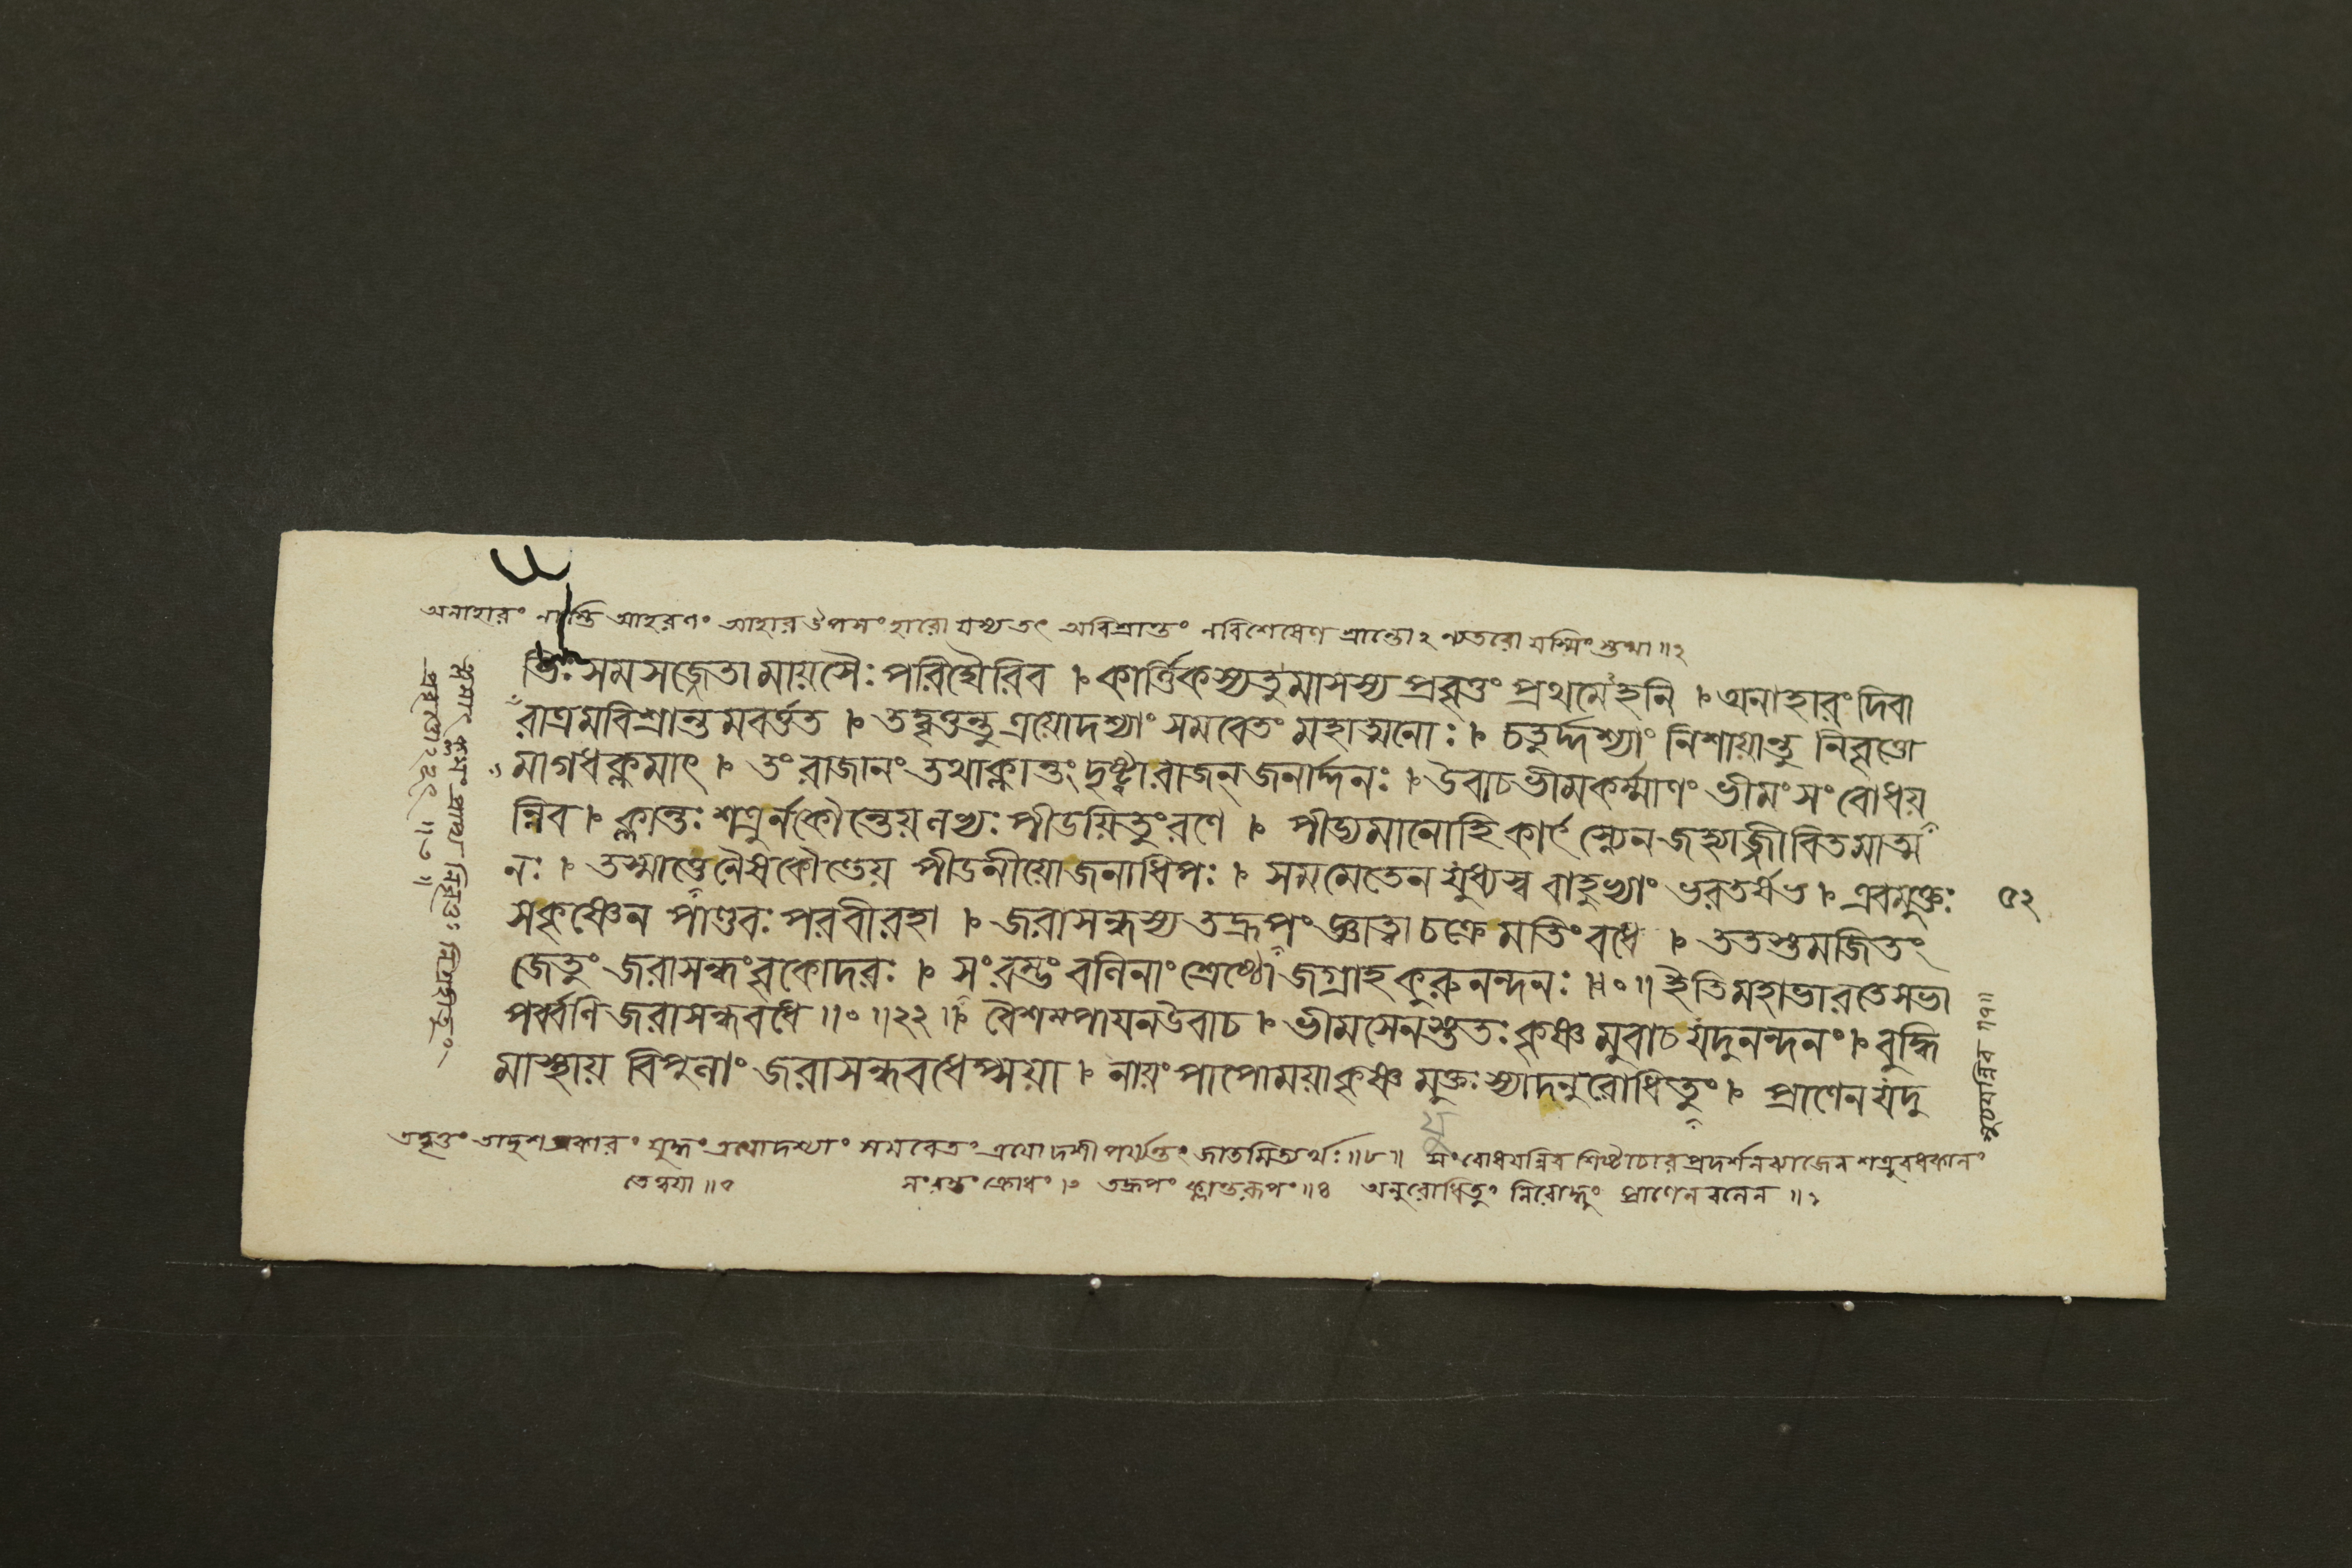 অনাহারং নাস্তি আহরণং আহার উপসংহারো যস্য তৎ অবিশ্রান্তং নবিশেষেণ শ্রান্তো২ ন্যতরো যস্মিং স্তথা ॥২
ভিঃ সমসজ্জেতামায়সৈঃ পরিঘৈরিব । কার্ত্তিকস্যতুমাসস্য প্রবৃত্তং প্রথমেহনি । অনাহারং দিবা
রাত্রমবিশ্রান্তমবর্ত্তত । তদ্বৃত্তন্তু ত্রয়োদশ্যাং সমবেতং মহাত্মনোঃ । চতুর্দ্দশ্যাং নিশায়ান্তু নিবৃত্তো
মাগধক্লমাৎ । তং রাজানং তথাক্লান্তং দৃষ্ট্বা রাজন্ জনার্দ্দনঃ । উবাচ ভীমকর্ম্মাণং ভীমং সংবোধয়
ন্নিব । ক্লান্তঃ শত্রুর্নকৌন্তেয় নভ্যঃ পীডয়িতুং রণে । পীড্যমানোহি কার্ৎস্ন্যেন জহ্যাজ্জীবিতমাত্ম
নঃ । তস্মাত্তেনৈব কৌন্তেয় পীডনীয়োজনাধিপঃ । সমমেতেন যুধ্যস্ব বাহুভ্যাং ভরতর্ষভ । এবমুক্তঃ
৫২
সকৃষ্ণেন পাণ্ডবঃ পরবীরহা । জরাসন্ধস্য তদ্রূপং জ্ঞাত্বা চক্রে মতিং বধে । ততস্তমজিতং
জেতুং জরাসন্ধং বৃকোদরঃ । সংরম্ভং বলিনাং শ্রেষ্ঠো জগ্রাহ কুরুনন্দনঃ ॥০॥ ইতি মহাভারতে সভা
পর্ব্বণি জরাসন্ধবধে ॥০॥২২॥ বৈশম্পায়ন উবাচ । ভীমসেনস্ততঃ কৃষ্ণমুবাচ যদুনন্দনং । বুদ্ধি
মাস্থায় বিপুলাং জরাসন্ধবধেপ্সয়া । নায়ং পাপোময়াকৃষ্ণ মুক্তঃ স্যাদনুরোধিতুং । প্রাণেন যদু
যু
তদ্বৃত্তং তাদৃশপ্রকারং যুদ্ধং ত্রয়োদশ্যাং সমবেতং ত্রয়োদশীপর্য্যন্তং জাতমিত্যর্থঃ ॥৮॥ সংবোধয়ন্নিব শিষ্টাচারপ্রদর্শনব্যাজেন শত্রুবধকালং
সংরম্ভং ক্রোধং । তদ্রূপং ক্লান্তরূপং ॥৪ অনুরোধিতুং নিরোদ্ধুং প্রাণেন বলেন ॥